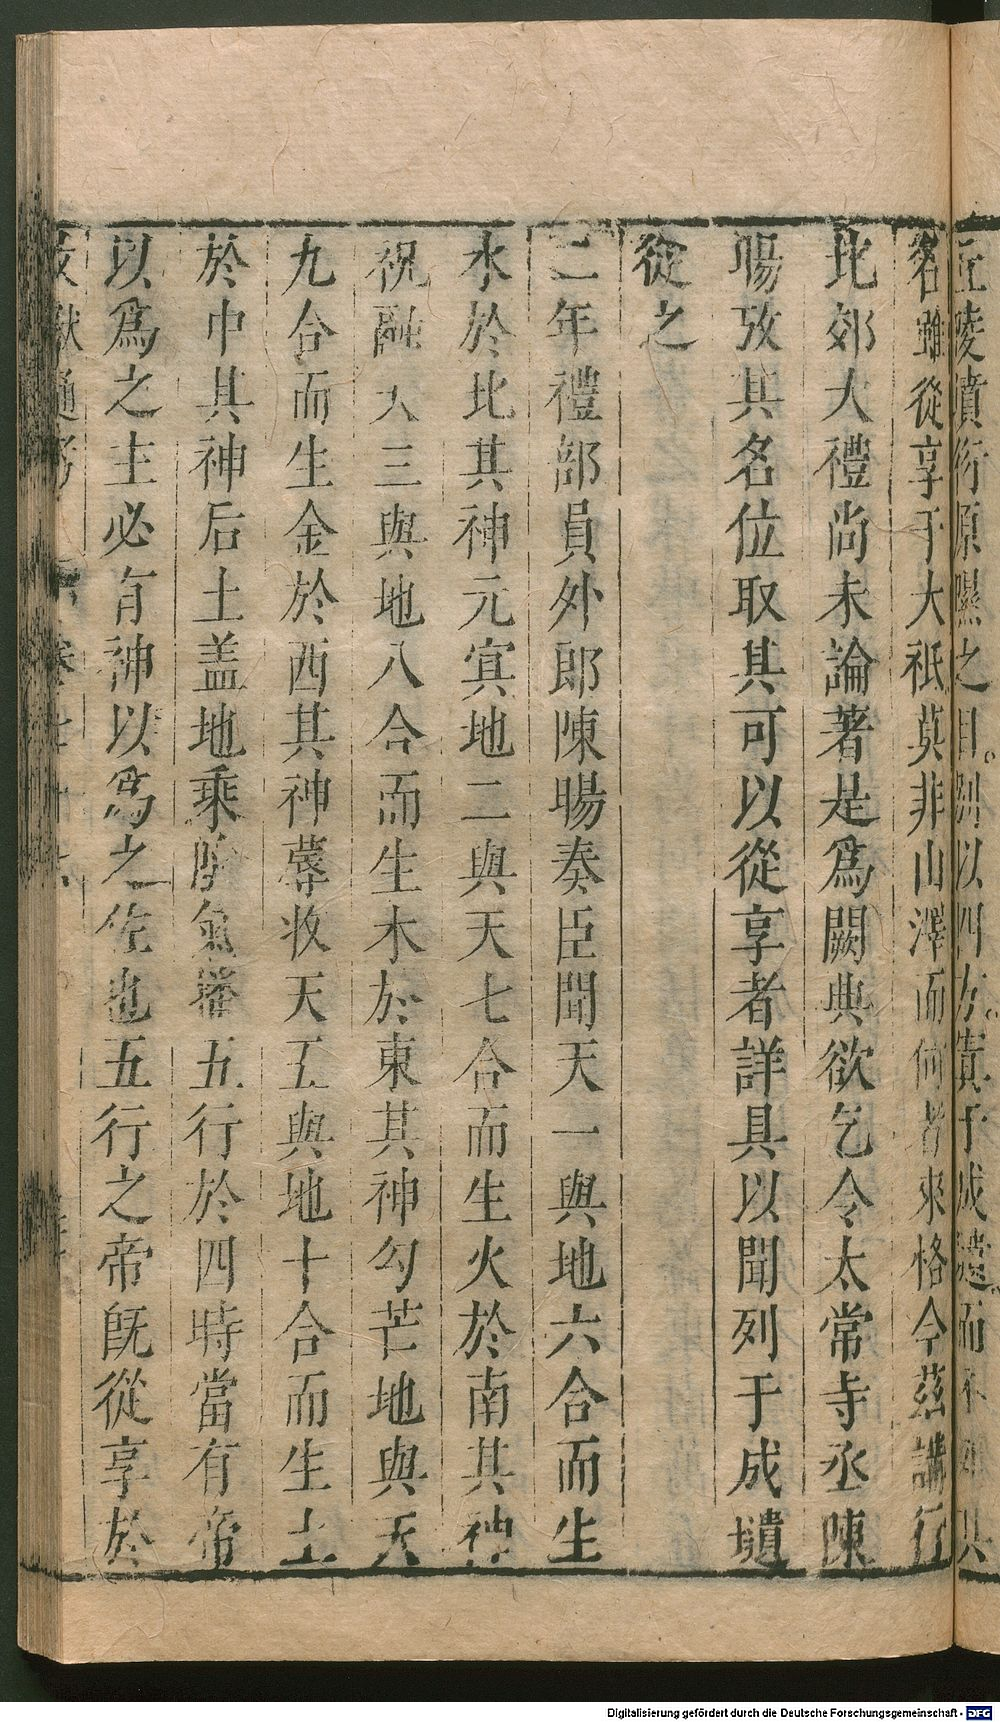 丘陵墳衍原隰之目別以四方責于成遺而不
名雖從享于大祇莫非山澤而何者來格今茲講行
北郊大禮尚未論著是爲闕典欲乞令太常寺丞陳
暘攷其名位取其可以從享者詳具以聞列于成壝
從之
二年禮部員外郎陳暘奏臣聞天一與地六合而生
水於北其神元㝠地二與天七合而生火於南其神
祝融天三與地八合而生木於東其神勾芒地與天
九合而生金於西其神蓐收天五與地十合而生土
於中其神后土盖地乘陰氣播五行於四時當有帝
以爲之主必有神以爲之佐也五行之帝旣從享於
文獻通考 卷七十六
Digitalisierung gefördert durch die Deutsche Forschungsgemeinschaft - DFG